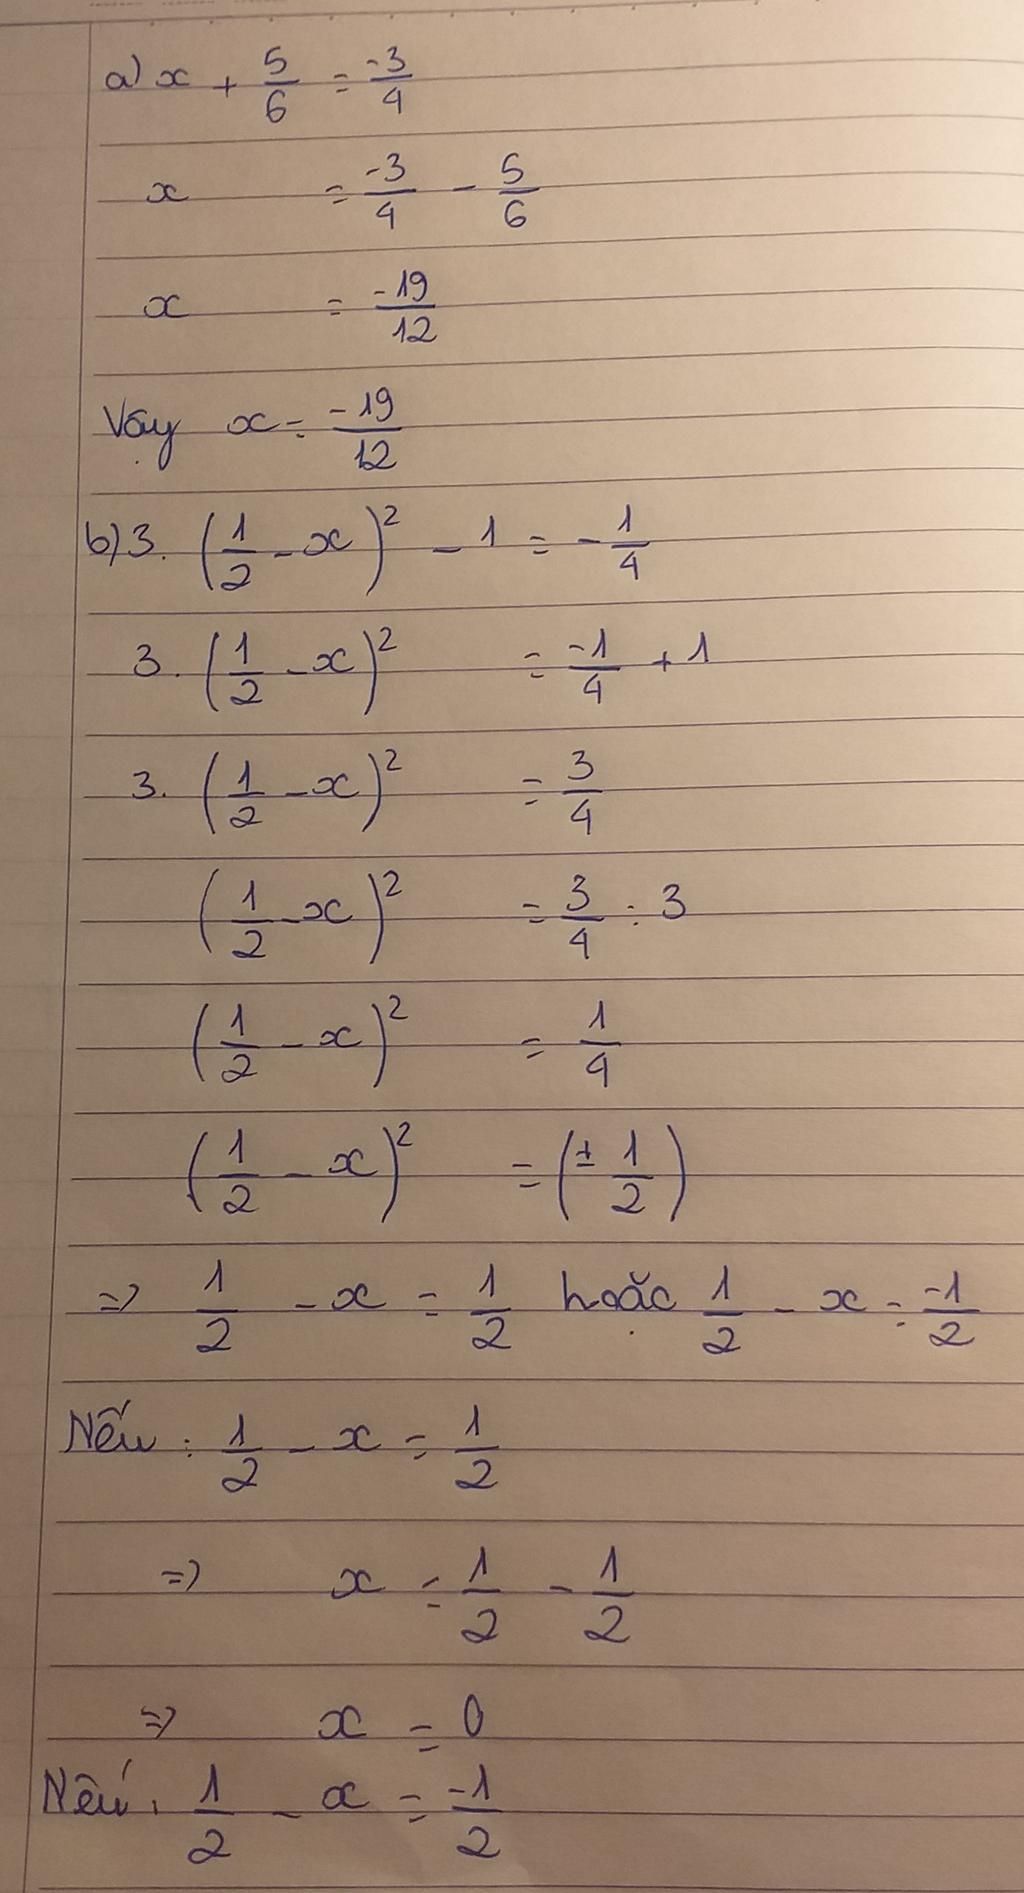 a) x + 5/6 = -3/4
x = -3/4 - 5/6
x = -19/12
Vậy x = -19/12
b) 3. (1/2 - x)² - 1 = - 1/4
3. (1/2 - x)² = -1/4 + 1
3. (1/2 - x)² = 3/4
(1/2 - x)² = 3/4 : 3
(1/2 - x)² = 1/4
(1/2 - x)² = (± 1/2)
=> 1/2 - x = 1/2 hoặc 1/2 - x = -1/2
Nếu : 1/2 - x = 1/2
=> x = 1/2 - 1/2
=> x = 0
Nếu : 1/2 - x = -1/2